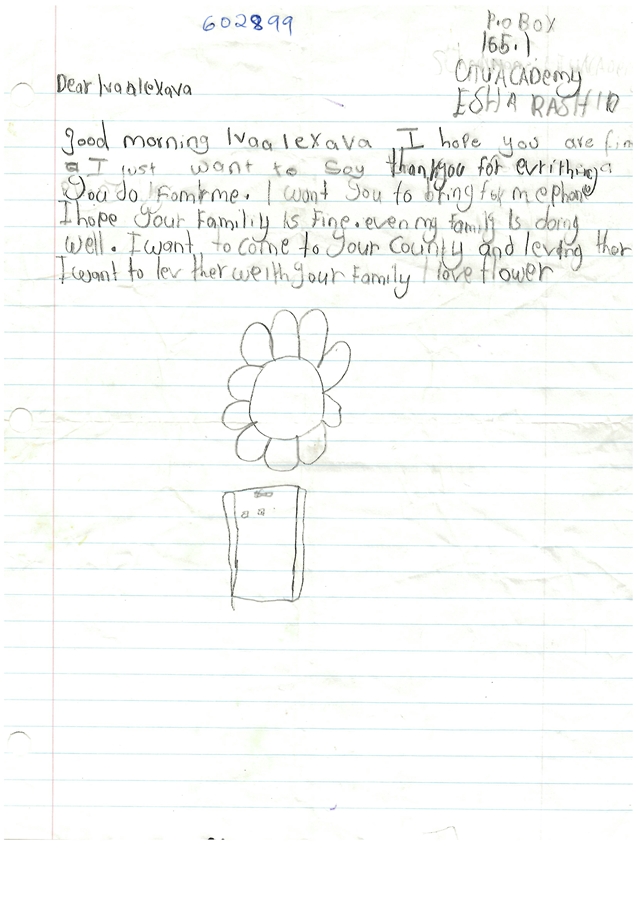 602899
P.o BOX
165.1
CITUACADemy
ESHA RASHID
Dear Ivaalexava
good morning Ivaalexava I hope you are fin
I just want to say thankyou for evrithing
You do for me. I want you to bring for m ephone
I hope your Familiy is fine. even my family Is doing
well. I want to come to your County and leving ther
I want to lev ther weith your Family I love flower